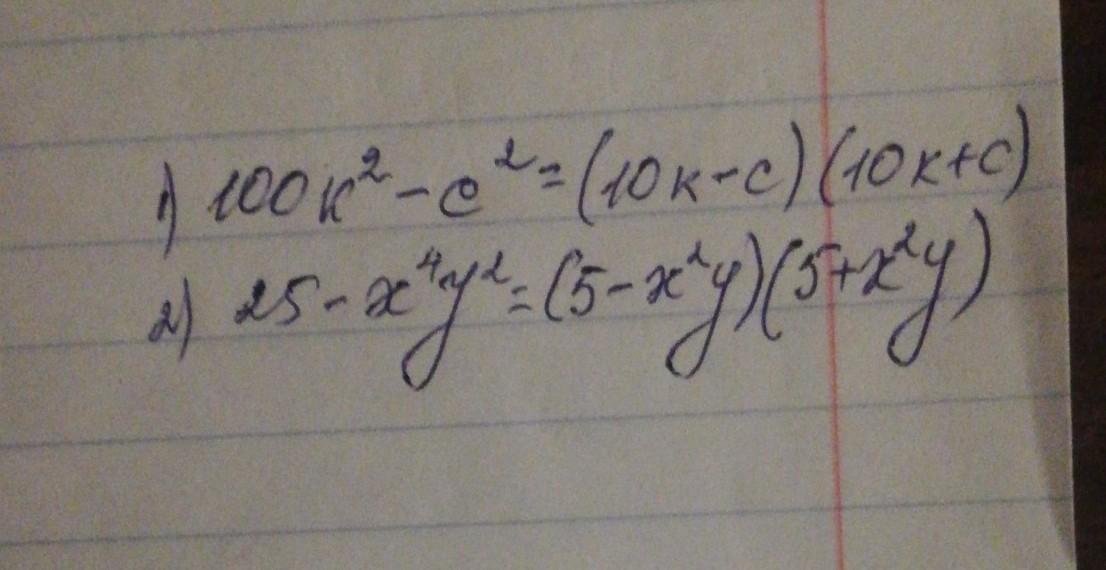 1) 100к² - с² = (10к - с)(10к + с)
2) 25 - x⁴y² = (5 - x²y)(5 + x²y)